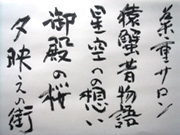 重サロン
猿蟹昔物語
星空への想い
御殿の桜
夕映えの街